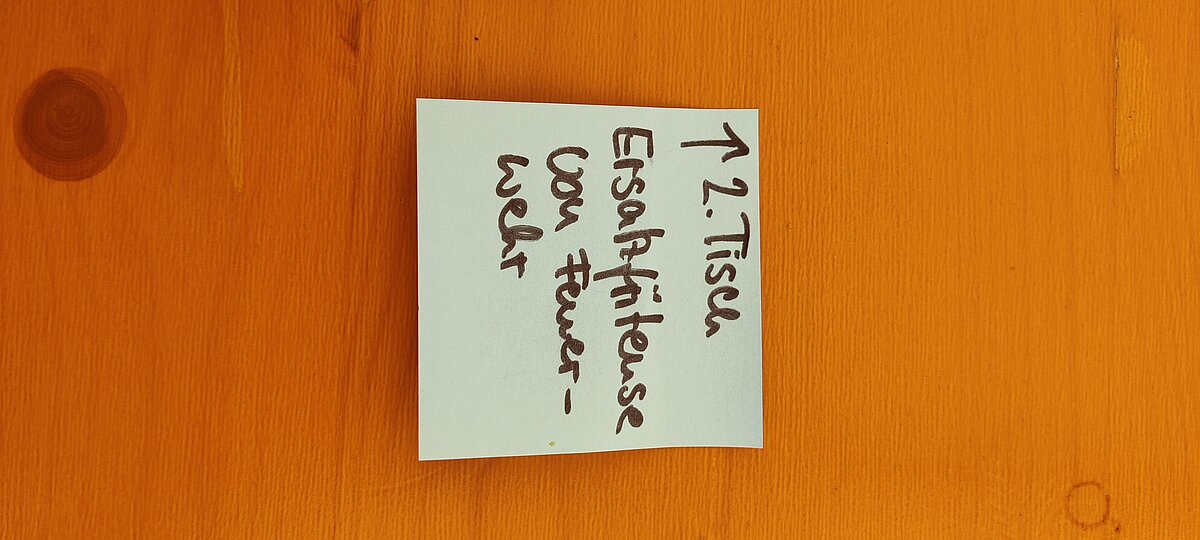 ↑ 2. Tisch
Ersatzfriteuse
von Feuer-
wehr